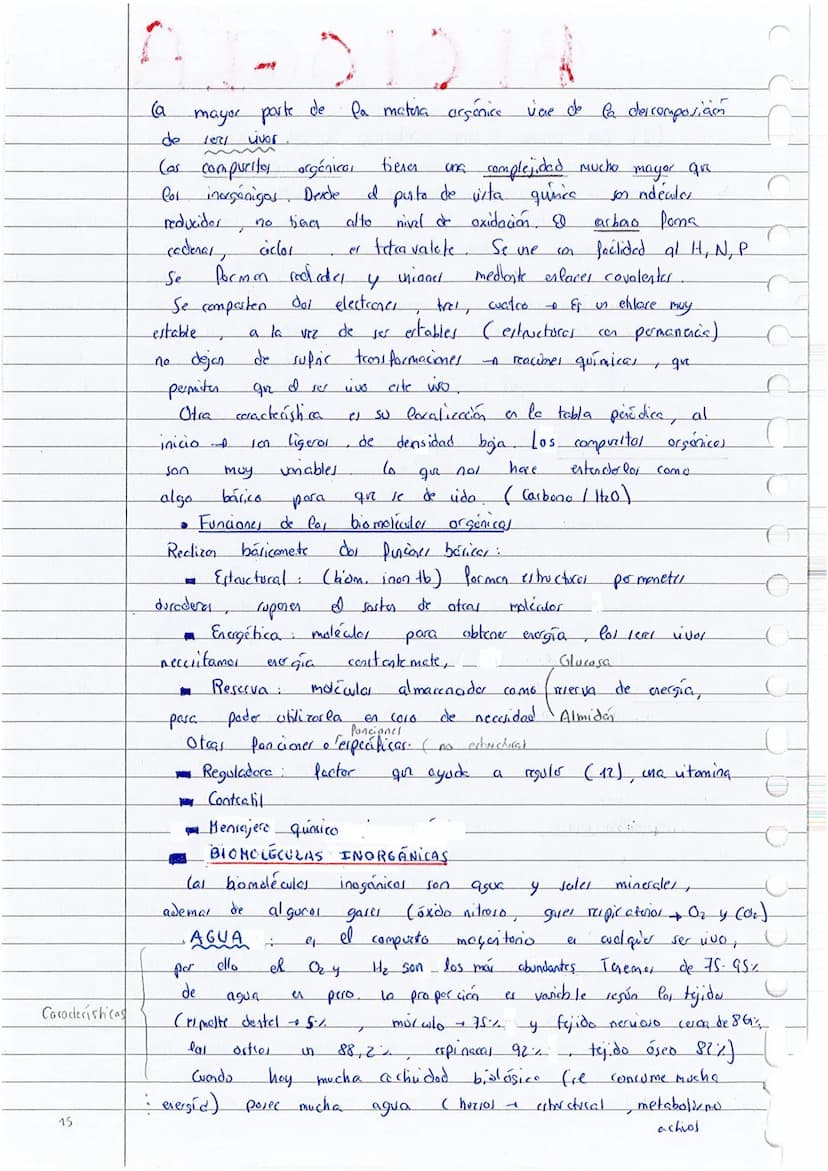 La mayor parte de la materia orgánica viene de la descomposición
de seres vivos.
Las compuestos orgánicos tienen una complejidad mucho mayor que
los inorgánigos. Desde el punto de vista química son moléculas
reducidas, no tienen alto nivel de oxidación. El carbono forma
cadenas, ciclos . es tetravalente. Se une con facilidad al H, N, P
Se forman radicales y uniones mediante enlaces covalentes.
Se comparten dos electrones, tres, cuatro → Es un enlace muy
estable, a la vez de ser estables (estructuras con permanencia)
no dejan de sufrir transformaciones → reacciones químicas, que
permiten que el ser vivo esté vivo.
Otra característica es su localización en la tabla periódica, al
inicio → son ligeros, de densidad baja. Los compuestos orgánicos
son muy variables. Lo que nos hace entenderlos como
algo básico para que se de vida. (Carbono / H2O)
• Funciones de las biomoléculas orgánicas
Realizan básicamente dos funciones básicas:
Estructural: (biom. inor tb) forman estructuras permanentes
duraderas, suponen el sostén de otras moléculas
Energética: moléculas para obtener energía, los seres vivos
necesitamos energía constantemente,
Glucosa
Reserva: moléculas almacenadas como reserva de energía,
para poder utilizarla en caso de necesidad Almidón
funciones
Otras funciones o específicas. (no estructural
Reguladora: factor que ayuda a regular (12), una vitamina
Contráctil
Mensajero químico
BIOMOLÉCULAS INORGÁNICAS
Las biomoléculas inogánicas son agua y sales minerales,
ademas de algunos gases (óxido nitroso, gases respiratorios → O2 y CO2)
AGUA: es el compuesto mayoritario en cualquier ser vivo,
por ello el O2 y H2 son los más abundantes Tenemos de 75-95%
de agua en peso. La proporción es variable según los tejidos
Características
( dental → 5%, músculo → 75% y tejido nervioso cerca de 86%,
las un 88,2%, espinacas 92%, tejido óseo 82%)
Cuando hay mucha actividad biológica (se consume mucha
energía) posee mucha agua ( → estructural, metabolismo
activos
15